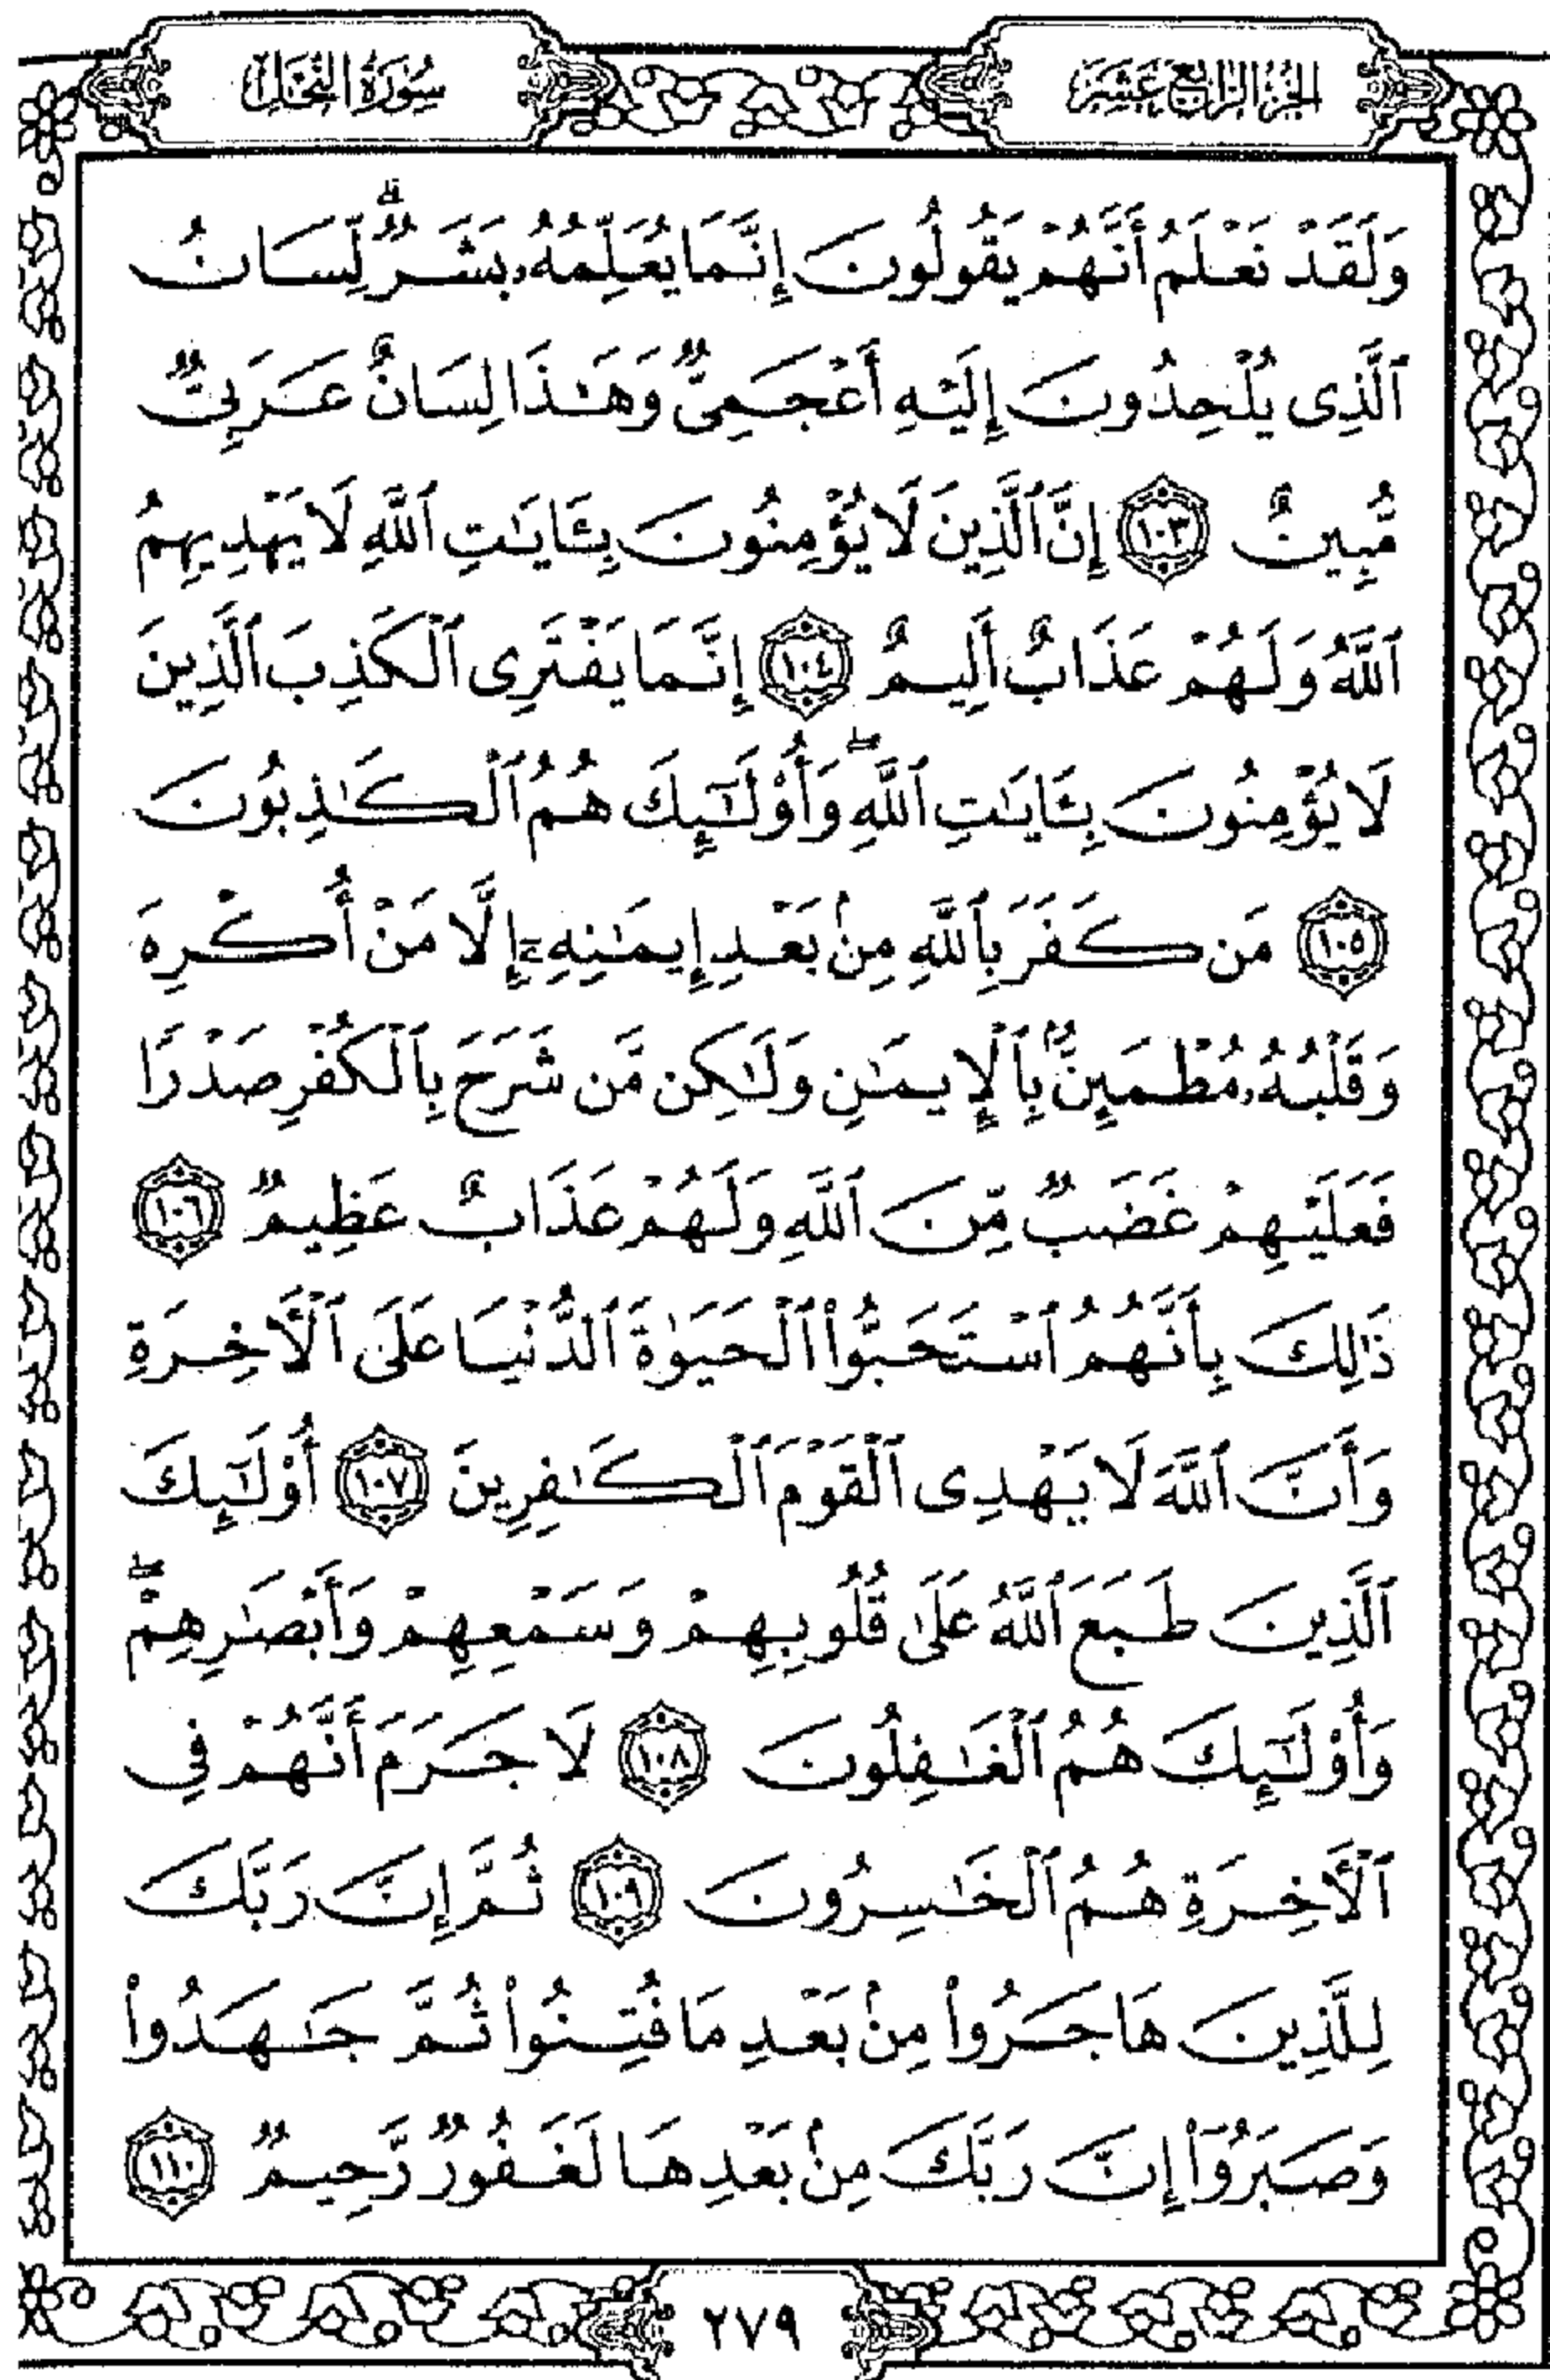 الجزء الرابع عشر
سورة النحل
وَلَقَدْ نَعْلَمُ أَنَّهُمْ يَقُولُونَ إِنَّمَا يُعَلِّمُهُۥ بَشَرٌۗ لِّسَانُ
ٱلَّذِى يُلْحِدُونَ إِلَيْهِ أَعْجَمِىٌّ وَهَـٰذَا لِسَانٌ عَرَبِىٌّ
مُّبِينٌ ١٠٣ إِنَّ ٱلَّذِينَ لَا يُؤْمِنُونَ بِـَٔايَـٰتِ ٱللَّهِ لَا يَهْدِيهِمُ
ٱللَّهُ وَلَهُمْ عَذَابٌ أَلِيمٌ ١٠٤ إِنَّمَا يَفْتَرِى ٱلْكَذِبَ ٱلَّذِينَ
لَا يُؤْمِنُونَ بِـَٔايَـٰتِ ٱللَّهِۖ وَأُو۟لَـٰٓئِكَ هُمُ ٱلْكَـٰذِبُونَ
١٠٥ مَن كَفَرَ بِٱللَّهِ مِنۢ بَعْدِ إِيمَـٰنِهِۦٓ إِلَّا مَنْ أُكْرِهَ
وَقَلْبُهُۥ مُطْمَئِنٌّۢ بِٱلْإِيمَـٰنِ وَلَـٰكِن مَّن شَرَحَ بِٱلْكُفْرِ صَدْرًا
فَعَلَيْهِمْ غَضَبٌ مِّنَ ٱللَّهِ وَلَهُمْ عَذَابٌ عَظِيمٌ ١٠٦
ذَٰلِكَ بِأَنَّهُمُ ٱسْتَحَبُّوا۟ ٱلْحَيَوٰةَ ٱلدُّنْيَا عَلَى ٱلْأَخِرَةِ
وَأَنَّ ٱللَّهَ لَا يَهْدِى ٱلْقَوْمَ ٱلْكَـٰفِرِينَ ١٠٧ أُو۟لَـٰٓئِكَ
ٱلَّذِينَ طَبَعَ ٱللَّهُ عَلَىٰ قُلُوبِهِمْ وَسَمْعِهِمْ وَأَبْصَـٰرِهِمْۖ
وَأُو۟لَـٰٓئِكَ هُمُ ٱلْغَـٰفِلُونَ ١٠٨ لَا جَرَمَ أَنَّهُمْ فِى
ٱلْأَخِرَةِ هُمُ ٱلْخَـٰسِرُونَ ١٠٩ ثُمَّ إِنَّ رَبَّكَ
لِلَّذِينَ هَاجَرُوا۟ مِنۢ بَعْدِ مَا فُتِنُوا۟ ثُمَّ جَـٰهَدُوا۟
وَصَبَرُوٓا۟ إِنَّ رَبَّكَ مِنۢ بَعْدِهَا لَغَفُورٌ رَّحِيمٌ ١١٠
٢٧٩